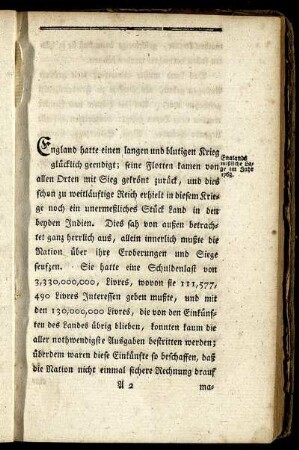 England hatte einen langen und blutigen Krieg
glücklich geendigt; seine Flotten kamen von
allen Orten mit Sieg gekrönt zurück, und dies
schon zu weitläuftige Reich erhielt in diesem Krie-
ge noch ein unermeßliches Stück Land in den
beyden Indien. Dies sah von außen betrach-
tet ganz herrlich aus, allein innerlich mußte die
Nation über ihre Eroberungen und Siege
seufzen. Sie hatte eine Schuldenlast von
3,330,000,000, Livres, wovon sie 111,577,
490 Livres Interessen geben mußte, und mit
den 130,000,000 Livres, die von den Einkünf-
ten des Landes übrig blieben, konnten kaum die
aller nothwendigste Ausgaben bestritten werden;
überdem waren diese Einkünfte so beschaffen, daß
die Nation nicht einmal sichere Rechnung drauf
A 2 ma-
Englands
mißliche La-
ge im Jahr
1763.